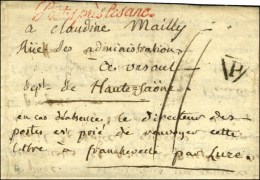 a Claudine Mailly
Rue des administrations
a vesoul
dept de Haute-Saône
en cas d'absence, le directeur des
postes est prié de renvoyer cette
lettre a franchevelle par Lure
P